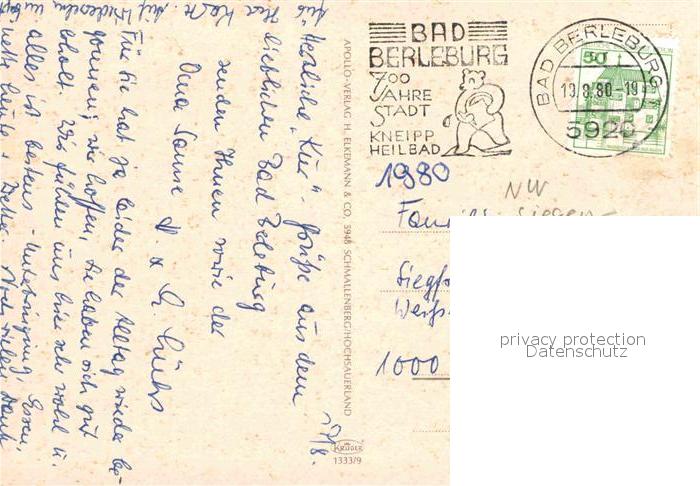 BAD
BERLEBURG
700
JAHRE
STADT
KNEIPP
HEILBAD
BAD BERLEBURG
19.8.80-19
5920
50
1980
NW
Siegen-
Siegf
1000
privacy protection
Datenschutz
APOLLO-VERLAG H. ELKEMANN & CO, 5948 SCHMALLENBERG/HOCHSAUERLAND
KRÜGER
1333/9
17/8.
Herzliche "Kur"-Grüße aus dem
lieblichen Bad Berleburg
senden Ihnen sowie der
Oma Sanne
Für Sie hat ja leider der Alltag wieder be-
gonnen; wir hoffen, Sie haben sich gut
erholt. Wir fühlen uns hier sehr wohl u.
alles ist bestens - Unterbringung, Essen,
nette Leute u. Wetter. Noch vielen Dank